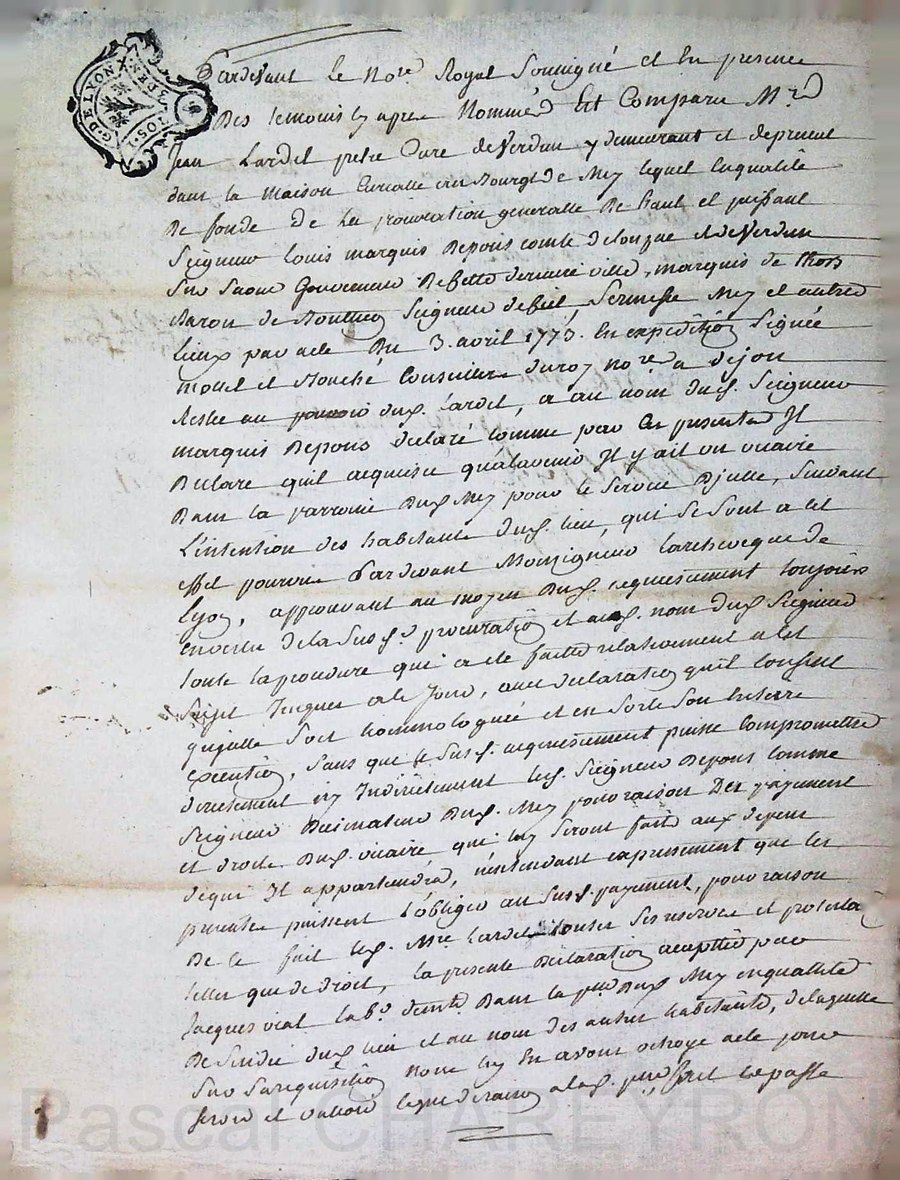 G. DE LYON
Pardevant le no.re Royal Soussigné et En presence
Des temoins cy apres Nommés Est Comparu M.re
Jean Lardet pretre Curé de Verdun y demeurant et depresent
dans la maison Curialle au Bourg de Mey lequel En qualité
De fondé De La procuration generalle De haut et puissant
Seigneur Louis marquis Depons comte de et de Verdun
Sur Saone Gouverneur De ville, marquis de thors
Baron de Seigneur de Sermesse Mey et autres
lieux par acte Du 3. avril 1773. En expédition Signée
et Bouché Conseillers du roy no.re a dijon
Reste au pouvoir dud. Lardet, a au nom dud. Seigneur
marquis Depons declaré comme par Ces presentes Il
Declare quil acquiesce qualavenir Il y ait un vicaire
Dans la parroisse Dud. Mey pour le Service Djcelle, Suivant
L'intention des habitants dud. lieu, qui Se Sont a cet
effet pourvus Pardevant Monseigneur larcheveque de
Lyon, approuvant au moyen Dud. acquiescement toujours
En vertu de la Susd. procuration et aud. nom dud. Seigneur
toute la procedure qui a eté faitte relativement a cet
Sujet Jusques a ce Jour, avec declaration quil Consent
qujcelle Soit hommologuée et en Sorte Son Entiere
Execution, Sans que le Susd. acquiescement puisse Compromettre
directement ny Indirectement led. Seigneur Depons Comme
Seigneur Decimateur Dud. Mey pour raison Des payement
et droits Dud. vicaire qui luy Seront faits aux depens
De qui Il appartiendra, n'entendant expressement que les
presentes puissent L'obliger au Susd. payement, pour raison
De ce fait led. M.re Lardet toutes Ses reserves et protestaõns
telles que de droit, la presente Declaration acceptée par
Jacques vial lab.r demt. Dans la p.sse Dud. Mey En qualité
De Sindic dud. lieu et au nom des autres habitants, de laquelle
Sur Sa requisition nous luy En avons octroyé acte pour
Servir et valloir Ce que de raison a lad. p.sse fait lu passé
Pascal CHAREYRON